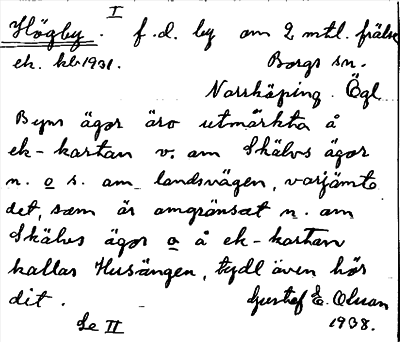 I
Högby. f.d. by om 2 mtl. frälse
ek. kbl 1931. Borgs sn.
Norrköping. Ögl.
Byns ägor äro utmärkta å
ek-kartan v. om Skälvs ägor
n. o s. om landsvägen, varjämte
det, som är omgränsat n. om
Skälvs ägor o å ek-kartan
kallas Husängen, tydl även hör
dit. Gustaf E. Olsson
Se II 1938.